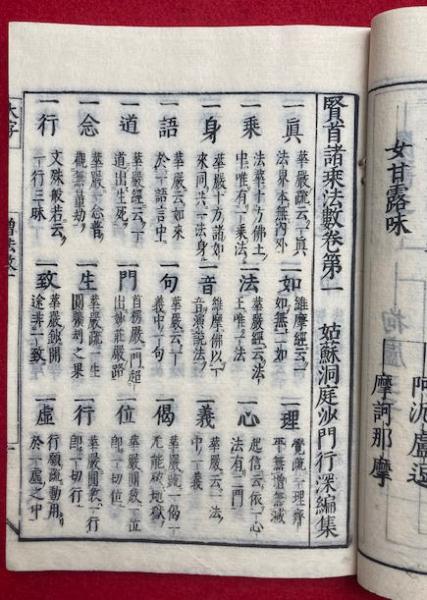 女甘露味
阿泥盧逗
摩訶那摩
賢首諸乘法數卷第一 姑蘇洞庭沙門行深編集
一眞 華嚴疏云一眞法界本無內外 一如 維摩經云一如無二如 一理 覺疏云理齊平無增無減
一乘 法華十方佛土中唯有一乘法 一法 華嚴經云法王唯一法 一心 起信云依一心法有二門
一身 華嚴十方諸如來同共一法身 一音 維摩佛以一音演說法 一義 華嚴云一法中一義
一語 華嚴云如來於一語言中 一句 華嚴云一義中一句 一偈 華嚴疏一偈能破地獄
一道 華嚴經云一道出生死 一門 首楞嚴一門超出妙莊嚴路 一位 華嚴圓教一位即一切位
一念 華嚴一念普觀無量劫 一生 華嚴疏一生圓曠劫之果 一行 華嚴圓教一行即一切行
一行 文殊般若云一行三昧 一致 華嚴鈔開途非一致 一虛 行願疏動用於一虛之中